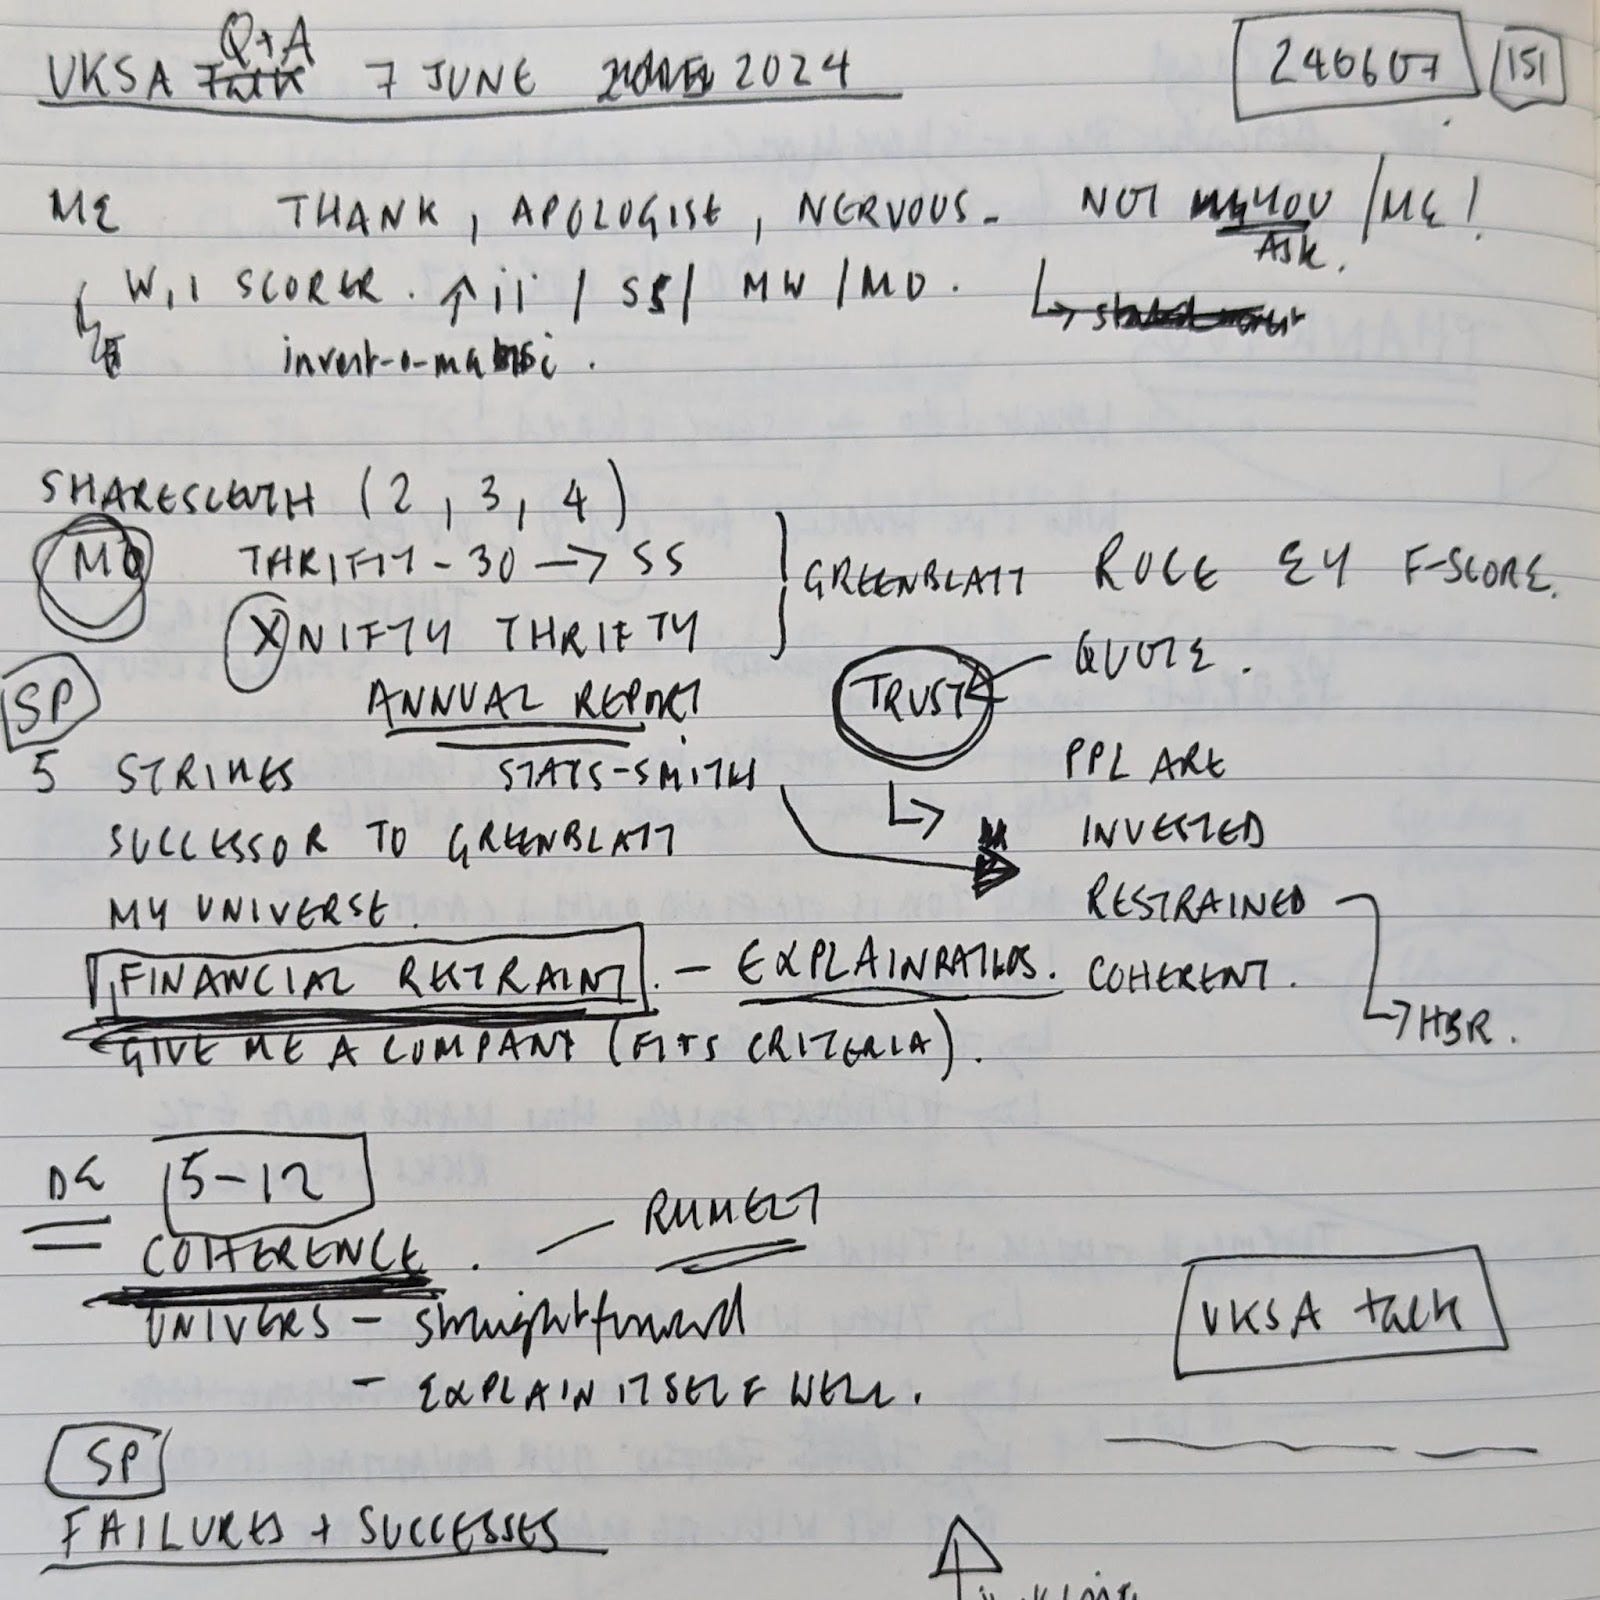 UKSA Q+A 7 JUNE 2024 240607 151
ME THANK, APOLOGISE, NERVOUS - NOT YOU / ME!
ASK.
SCORER. ↑ ii / SS / MW / MD.
invest-o-ma
SHARESLEUTH (2, 3, 4)
MD THRIFTY-30 → SS GREENBLATT RULE EY F-SCORE.
X NIFTY THRIFTY
QUOTE.
SP ANNUAL REPORT TRUST
5 STRIKES STATS-SMITH PPL ARE
SUCCESSOR TO GREENBLATT INVESTED
MY UNIVERSE. RESTRAINED
FINANCIAL RESTRAINT. - COHERENT.
→ HBR.
GIVE ME A COMPANY (FITS CRITERIA).
DE 5-12
COHERENCE. - RUMELT
UNIVERS - straightforward
UKSA talk
- EXPLAIN ITSELF WELL.
SP
FAILURES + SUCCESSES